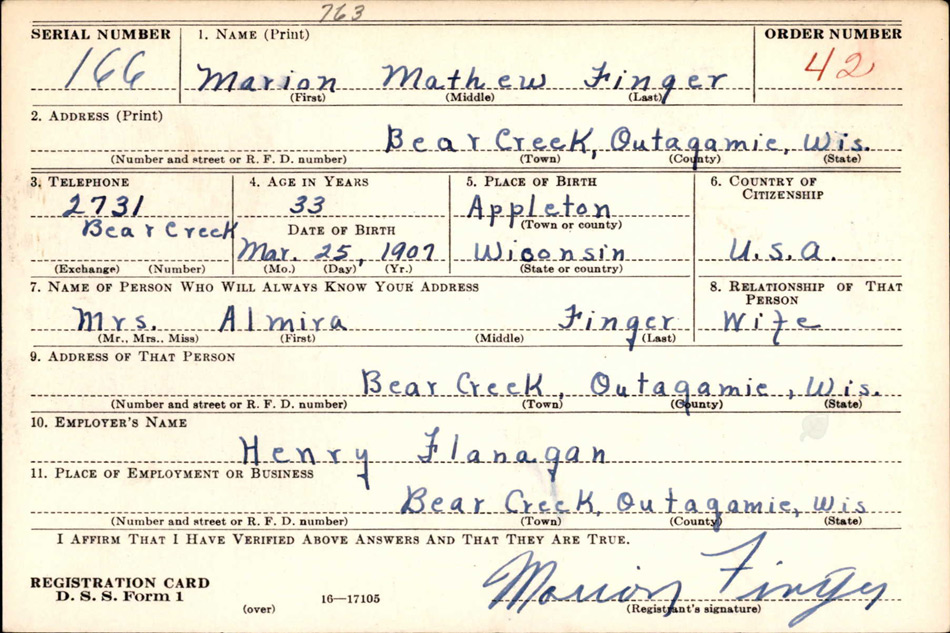 763
SERIAL NUMBER 1. NAME (Print) ORDER NUMBER
166 Marion Mathew Finger 42
(First) (Middle) (Last)
2. ADDRESS (Print)
Bear Creek, Outagamie, Wis.
(Number and street or R. F. D. number) (Town) (County) (State)
3. TELEPHONE 4. AGE IN YEARS 5. PLACE OF BIRTH 6. COUNTRY OF CITIZENSHIP
2731 33 Appleton
(Town or county)
Bear Creek DATE OF BIRTH
Mar. 25, 1907 Wiconsin U.S.A.
(Exchange) (Number) (Mo.) (Day) (Yr.) (State or country)
7. NAME OF PERSON WHO WILL ALWAYS KNOW YOUR ADDRESS 8. RELATIONSHIP OF THAT PERSON
Mrs. Almira Finger Wife
(Mr., Mrs., Miss) (First) (Middle) (Last)
9. ADDRESS OF THAT PERSON
Bear Creek, Outagamie, Wis.
(Number and street or R. F. D. number) (Town) (County) (State)
10. EMPLOYER'S NAME
Henry Flanagan
11. PLACE OF EMPLOYMENT OR BUSINESS
Bear Creek, Outagamie, Wis
(Number and street or R. F. D. number) (Town) (County) (State)
I AFFIRM THAT I HAVE VERIFIED ABOVE ANSWERS AND THAT THEY ARE TRUE.
Marion Finger
REGISTRATION CARD
D. S. S. Form 1 (over) 16—17105 (Registrant's signature)